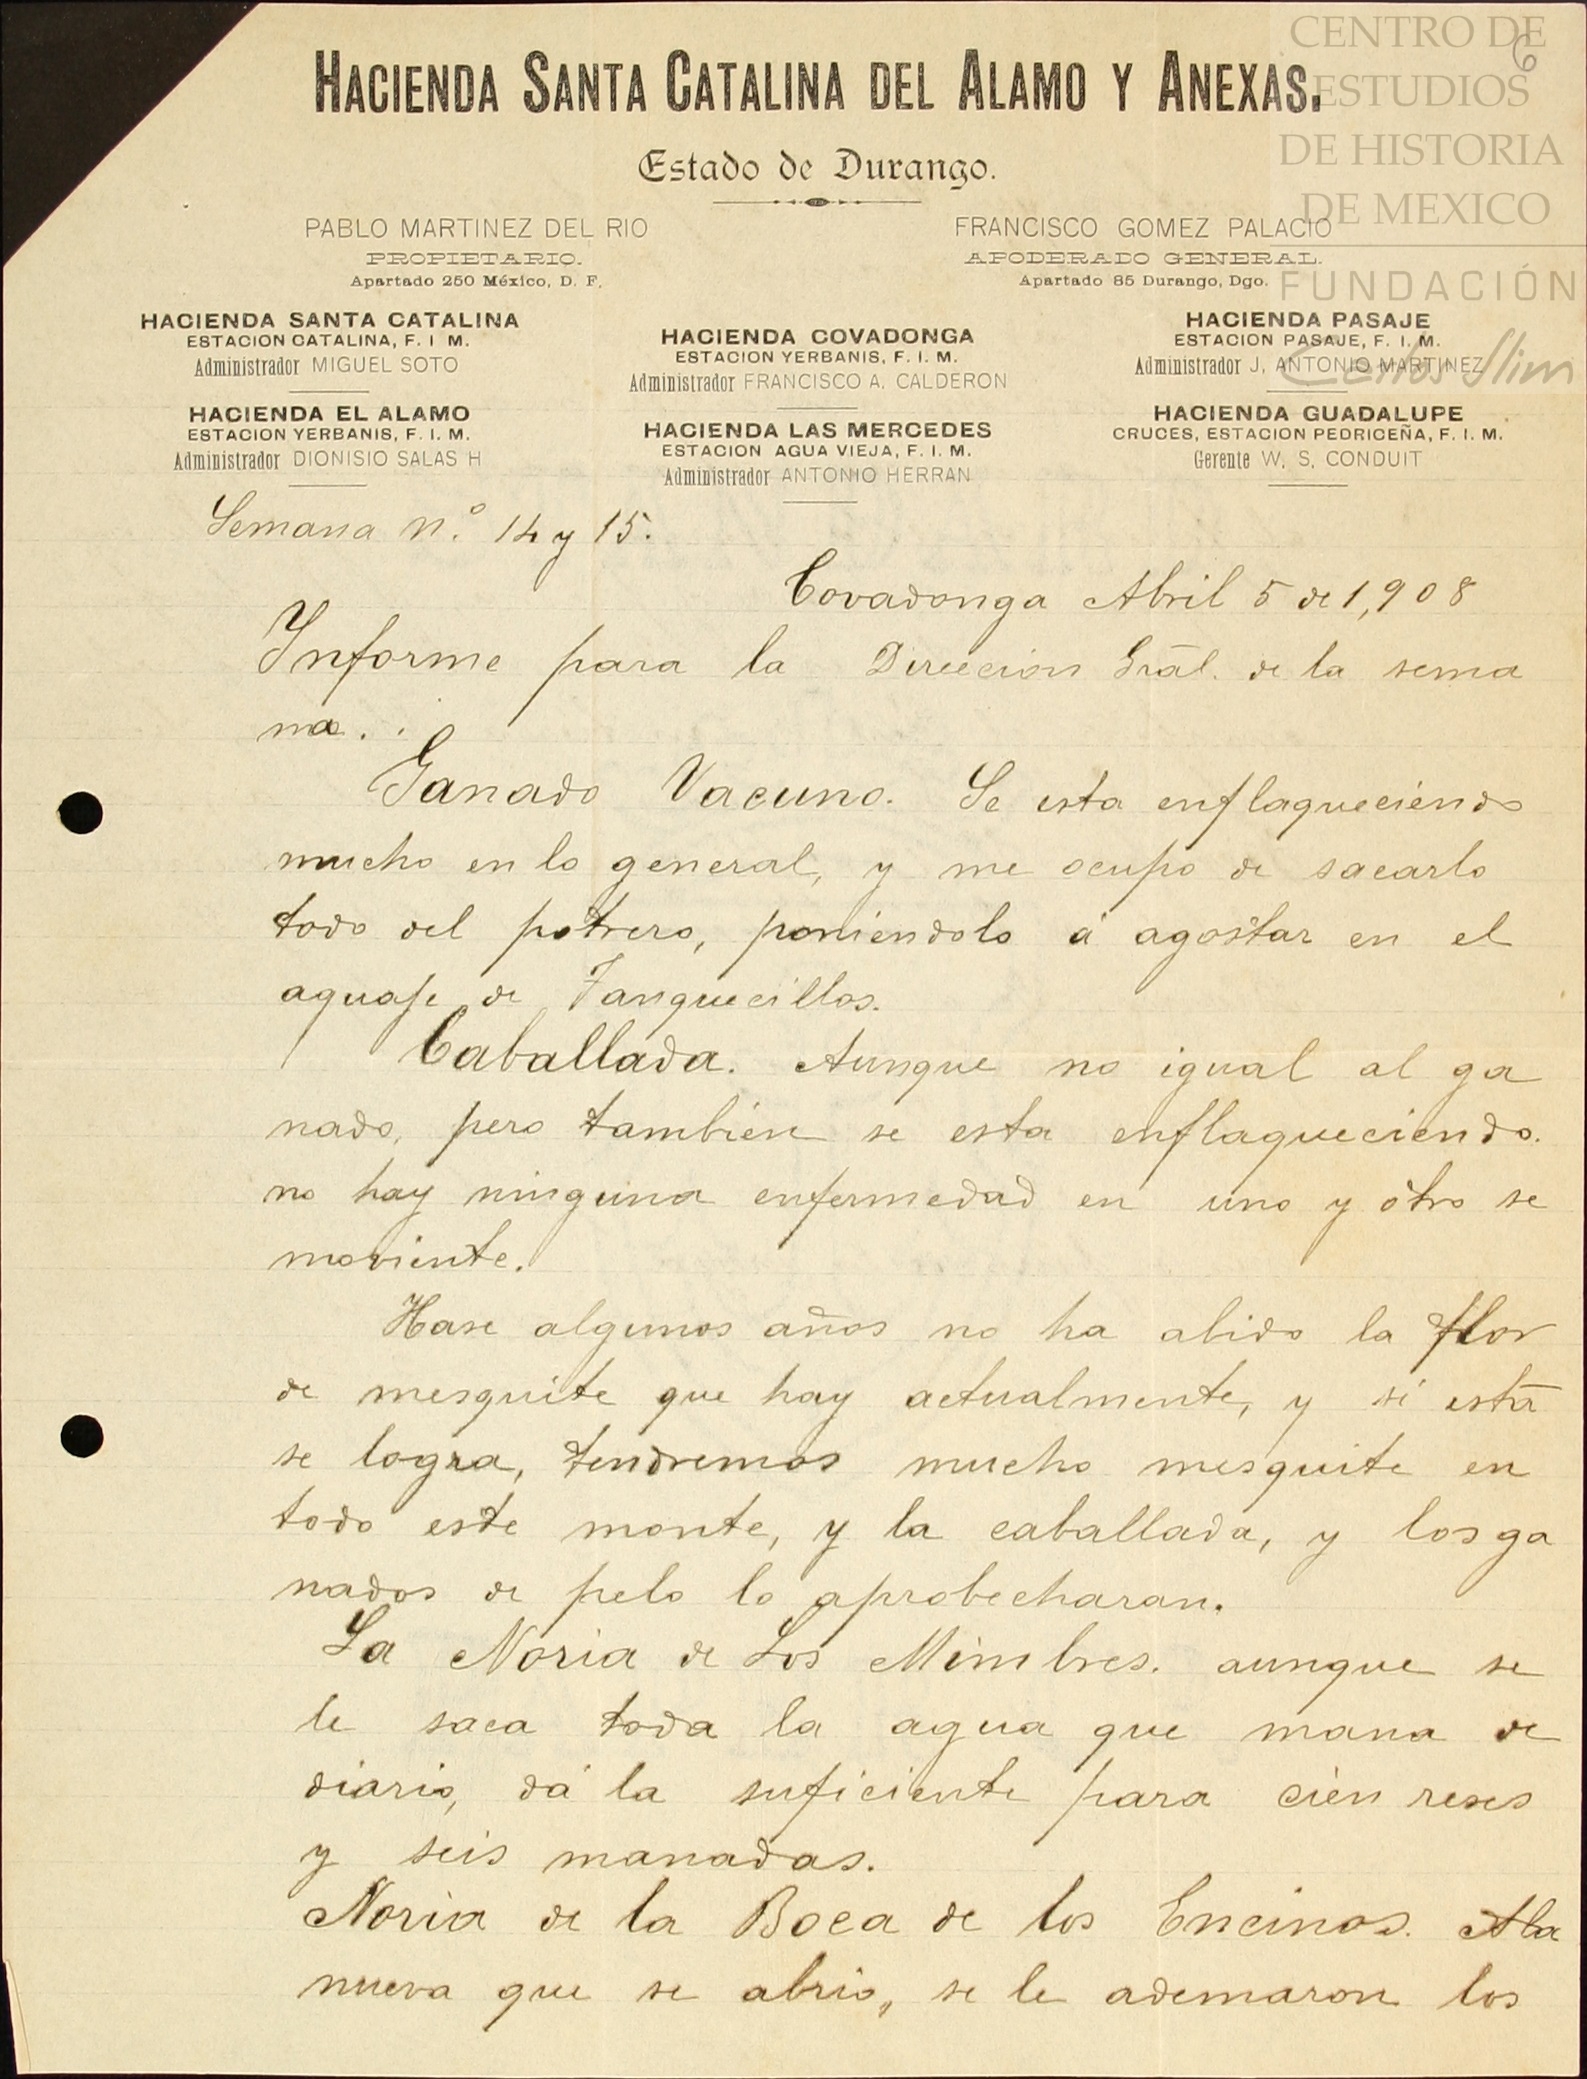 CENTRO DE
ESTUDIOS
DE HISTORIA
DE MEXICO
FUNDACIÓN
Carlos Slim
6
HACIENDA SANTA CATALINA DEL ALAMO Y ANEXAS.
Estado de Durango.
PABLO MARTINEZ DEL RIO
PROPIETARIO.
Apartado 250 México, D. F.
FRANCISCO GOMEZ PALACIO
APODERADO GENERAL.
Apartado 85 Durango, Dgo.
HACIENDA SANTA CATALINA
ESTACION CATALINA, F. I M.
Administrador MIGUEL SOTO
HACIENDA COVADONGA
ESTACION YERBANIS, F. I. M.
Administrador FRANCISCO A. CALDERON
HACIENDA PASAJE
ESTACION PASAJE, F. I. M.
Administrador J. ANTONIO MARTINEZ
HACIENDA EL ALAMO
ESTACION YERBANIS, F. I. M.
Administrador DIONISIO SALAS H
HACIENDA LAS MERCEDES
ESTACION AGUA VIEJA, F. I. M.
Administrador ANTONIO HERRAN
HACIENDA GUADALUPE
CRUCES, ESTACION PEDRICEÑA, F. I. M.
Gerente W. S. CONDUIT
Semana N.º 14 y 15.
Covadonga Abril 5 de 1,908
Informe para la Direccion Gräl. de la sema
na..
Ganado Vacuno. Se esta enflaqueciendo
mucho en lo general, y me ocupo de sacarlo
todo del potrero, poniendolo á agostar en el
aguaje de Tanquecillos.
Caballada. Aunque no igual al ga
nado, pero tambien se esta enflaqueciendo.
no hay ninguna enfermedad en uno y otro se
moviente.
Hase algunos años no ha abido la flor
de mesquite que hay actualmente, y si está
se logra, tendremos mucho mesquite en
todo este monte, y la caballada, y los ga
nados de pelo lo aprobecharan.
La Noria de Los Mimbres. aunque se
le saca toda la agua que mana de
diario, dá la suficiente para cien reses
y seis manadas.
Noria de la Boca de los Encinos. A la
nueva que se abrio, se le ademaron los